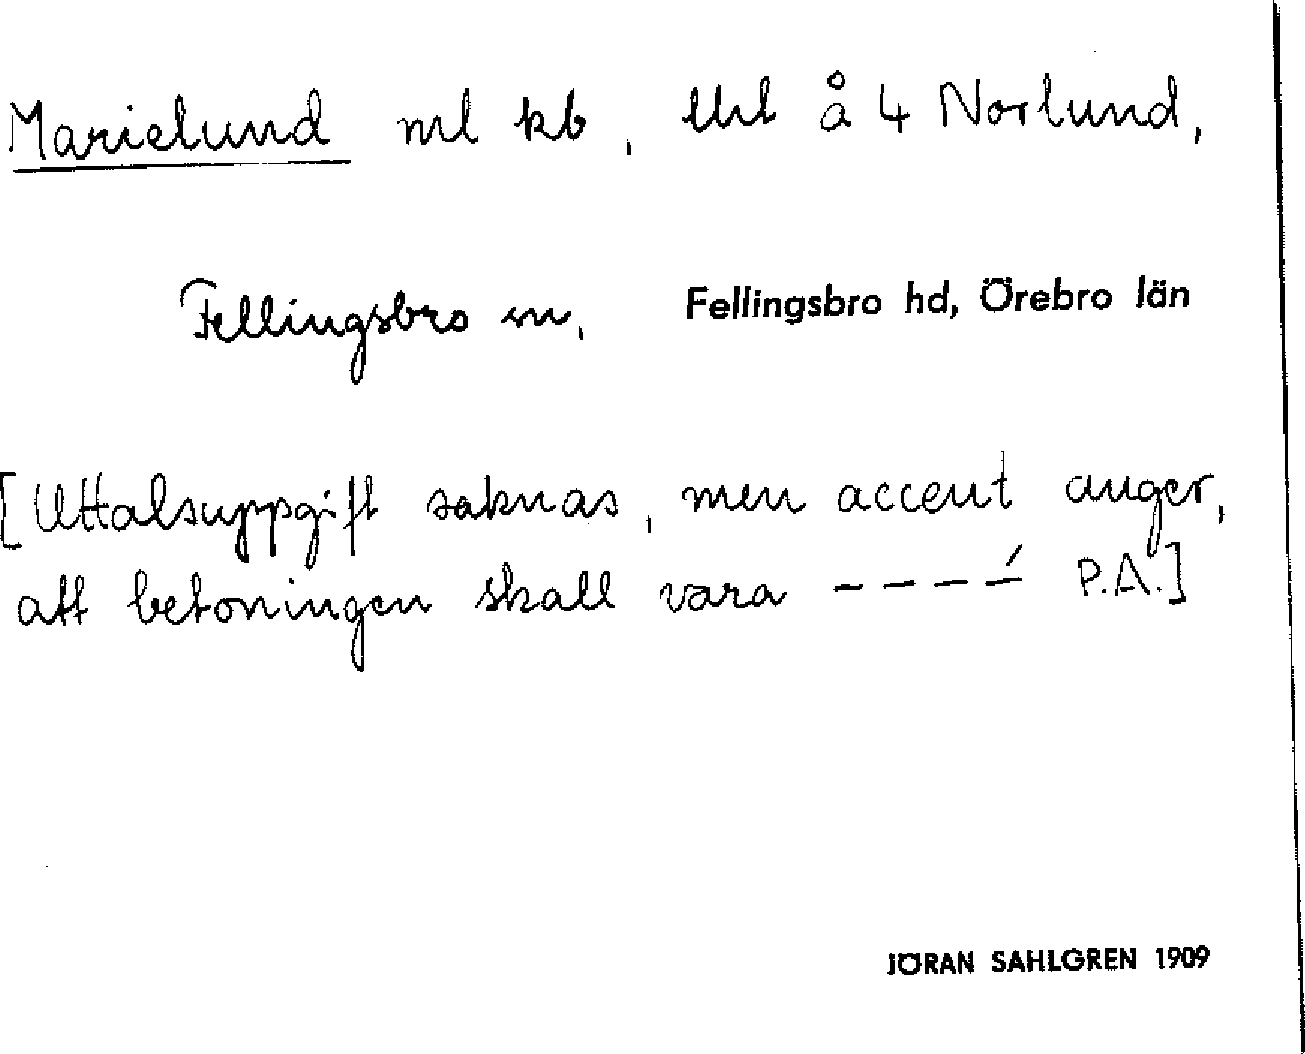 Marielund ml kb, tht å 4 Norlund,
Fellingsbro sn, Fellingsbro hd, Örebro län
[Uttalsuppgift saknas, men accent anger,
att betoningen skall vara – – – –́ P.A.]
JÖRAN SAHLGREN 1909